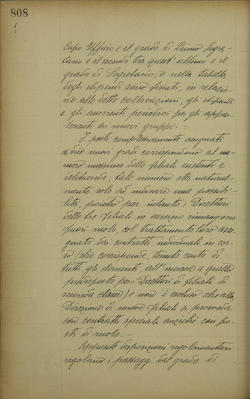 808
Capo Ufficio e il grado di Primo Segre-
tario e il secondo tra quest'ultimo e il
grado di Segretario; e nella tabella
degli stipendi sono fissati, in relazio-
ne alle dette collocazioni, gli stipendi
e gli aumenti periodici per gli appar-
tenenti ai nuovi gruppi.
I posti complessivamente assegnati
ai due nuovi gradi corrispondono al nu-
mero massimo delle filiali esistenti e
istituende, tale numero sta natural-
mente solo ad indicare una possibi-
lità, poiché per intanto i Direttori
delle filiali in esercizio rimangono
fuori ruolo col trattamento loro asse-
gnato dai contratti individuali in cor-
so (che corrisponde, tenuto conto di
tutti gli elementi, all'incirca a quello
predisposto per i Direttori di filiali di
seconda classe) e non è escluso che alla
Direzione di nuove filiali si provveda
con contratti speciali anziché con po-
sti di ruolo.
Apposite disposizioni regolamentari
regolano i passaggi dal grado di